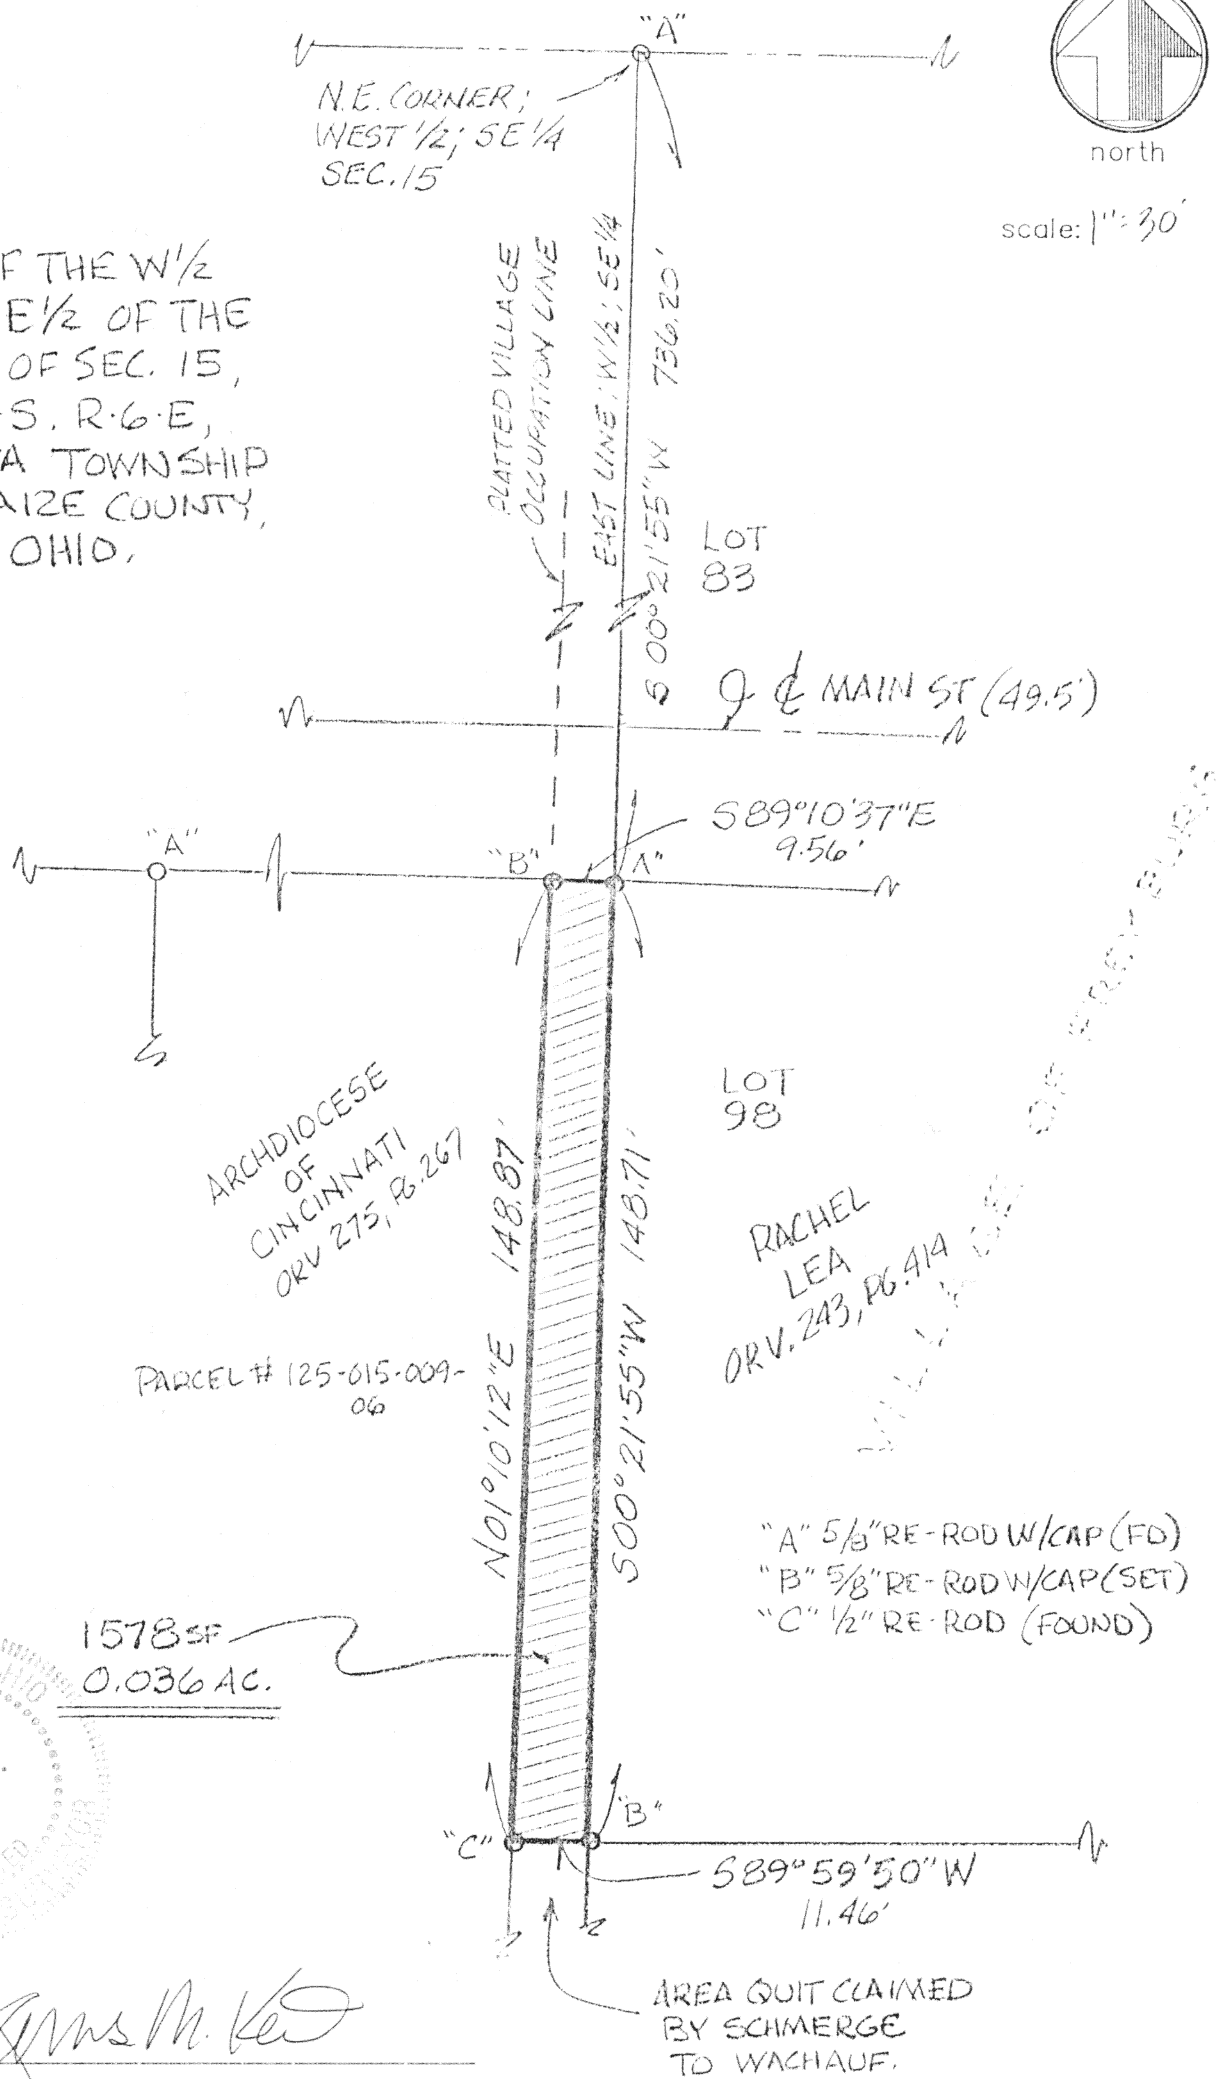 "A"
N.E. CORNER;
WEST 1/2; SE 1/4
SEC. 15
north
scale: 1"=30'
F THE W 1/2
E 1/2 OF THE
OF SEC. 15,
S. R-6-E,
A TOWNSHIP
AIZE COUNTY,
OHIO.
PLATTED VILLAGE
OCCUPATION LINE
EAST LINE; W 1/2; SE 1/4
S 00° 21' 55" W 736.20'
LOT
83
℄ MAIN ST (49.5')
S 89° 10' 37" E
9.56'
"A"
"B"
"A"
ARCHDIOCESE
OF
CINCINNATI
ORV 275, PG. 267
LOT
98
RACHEL
LEA
ORV. 243, PG. 414
VILLAGE OF FREYBURG
N 01° 10' 12" E 148.87'
S 00° 21' 55" W 148.71'
PARCEL # 125-015-009-
06
"A" 5/8" RE-ROD W/CAP (FD)
"B" 5/8" RE-ROD W/CAP (SET)
"C" 1/2" RE-ROD (FOUND)
1578 SF
0.036 AC.
"C"
"B"
S 89° 59' 50" W
11.46'
AREA QUIT CLAIMED
BY SCHMERGE
TO WACHAUF.